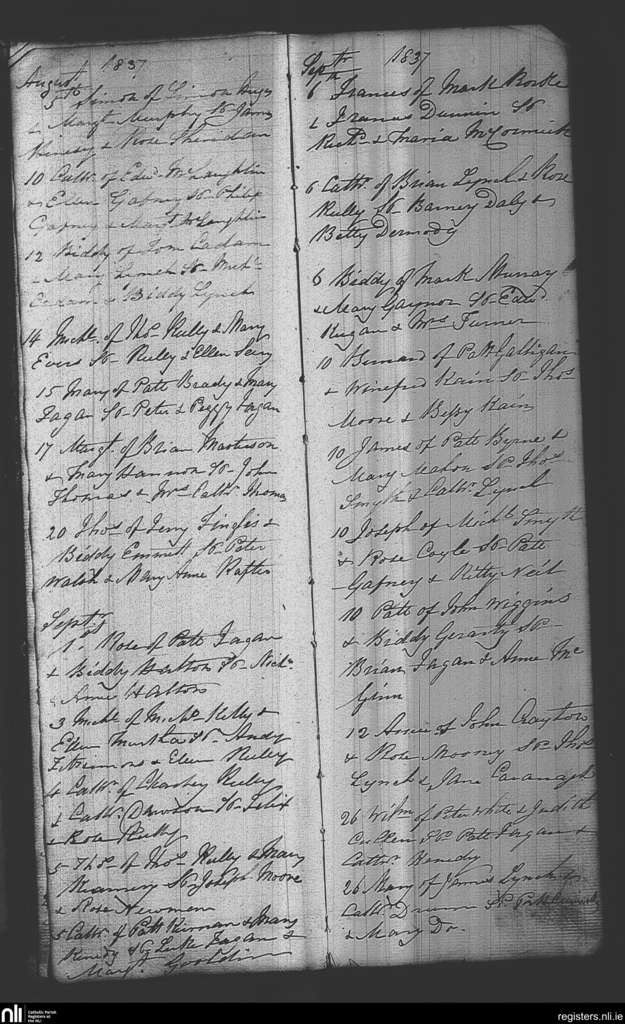 August 1837
5th Simon of Simon
& Margt Murphy Sp James
& Rose Sheridan
10 Cathr. of Edwd McLaughlin
& Ellen Gafney Sp Philip
Gafney & Margt McLaughlin
12 Biddy of Tom
& Mary Lynch Sp Michl.
& Biddy Lynch
14 Michl. of Thos Reilly & Mary
Evers Sp Reilly & Ellen
15 Mary of Patt Brady & Mary
Fagan Sp Peter & Peggy Fagan
17 Margt. of Brian
& Mary Hannon Sp John
Thomas & Mrs Cathr. Thomas
20 Thos of Jerry &
Biddy Emmett Sp Peter
Walsh & Mary Anne Rafter
Septr
1st Rose of Patt Fagan
& Biddy Halton Sp Nichs.
Anne Halton
3 Michl of Michl Kelly &
Ellen Murtha Sp Andy
Fitzsimons & Ellen Reilly
4 Cathr. of Charley Reilly
& Cathr. Dawson Sp Felix
& Rose Reilly
5 Thos of Thos Reilly & Mary
Sp Joseph Moore
& Rose Newman
5 Cathr. of Patt Kiernan & Mary
Kenedy Sp Luke Fagan &
Margt.
Septr 1837
6th Frances of Mark Rorke
& Frances Dunnin Sp
Richd. & Maria McCormick
6 Cathr. of Brian Lynch & Rose
Reilly Sp Barney Daly &
Betty Dermody
6 Biddy of Mark Murray
& Mary Gaynor Sp Edwd
& Mrs Furner
10 Bernard of Patt Galligan
& Winefred Kain Sp Thos
Moore & Bessy Kain
10 James of Patt Byrne &
Mary Mahon Sp Thos
Smyth & Cathr. Lynch
10 Joseph of Michl. Smyth
& Rose Coyle Sp Patt
Gafney & Kitty Neil
10 Patt of John Wiggins
& Biddy Geraty Sp
Brian Fagan & Anne Mc
Ginn
12 Anne of John Crayton
& Rose Moony Sp Thos
Lynch & Jane Cavanagh
26 Willm of Peter White & Judith
Cullen Sp Patt Fagan &
Cathr. Kenedy
26 Mary of James Lynch &
Cathr. Drumm Sp Patt
& Mary Do.
nli
Catholic Parish
Registers at
the NLI
registers.nli.ie